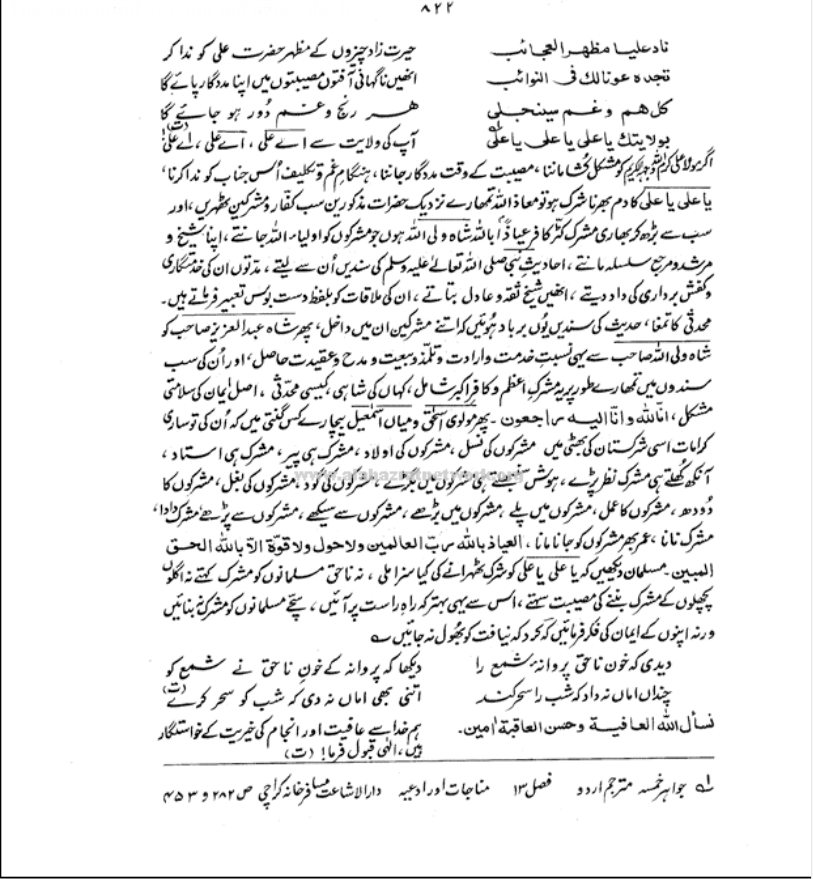 ۸۲۲
ناد علیا مظهر العجائب حیرت زا چیزوں کے مظہر حضرت علی کو ندا کر
تجده عونا لك فی النوائب انھیں ناگہانی آفتوں مصیبتوں میں اپنا مددگار پائے گا
كل هم وغم سينجلی ہر رنج و غم دُور ہو جائے گا
بولايتك یا علی یا علی یا علی؎۱ آپ کی ولایت سے اے علی ، اے علی ، اے علی! (ت)
اگر مولا علی کرم اللہ وجہہ الکریم کو مشکل کشا ماننا ، مصیبت کے وقت مددگار جاننا ، ہنگامِ غم و تکلیف اُس جناب کو ندا کرنا ،
یا علی یا علی کا دم بھرنا شرک ہو تو معاذ اللہ تمھارے نزدیک حضرات مذکورین سب کفار و مشرکین ٹھہریں ، اور
سب سے بڑھ کر بھاری مشرک کٹر کافر عیاذًا باللہ شاہ ولی اللہ ہوں جو مشرکوں کو اولیاء اللہ جانتے ، اپنا شیخ و
مرشد و مرجع سلسلہ مانتے ، احادیثِ نبی صلی اللہ تعالٰے علیہ وسلم کی سندیں اُن سے لیتے ، مدتوں ان کی خدمتگاری
و کفش برداری کی داد دیتے ، انھیں شیخ ثقہ و عادل بتاتے ، ان کی ملاقات کو بلفظ دست بوس تعبیر فرماتے ہیں۔
محدثی کا تمغا ، حدیث کی سندیں یوں برباد ہوئیں کہ اتنے مشرکین ان میں داخل ، پھر شاہ عبدالعزیز صاحب کو
شاہ ولی اللہ صاحب سے یہی نسبتِ خدمت و ارادت و تلمذ و بیعت و مدح و عقیدت حاصل ، اور اُن کی سب
سندوں میں تمھارے طور پر یہ مشرک اعظم و کافر اکبر شامل ، کہاں کی شاہی ، کیسی محدثی ، اصل ایمان کی سلامتی
مشکل ، انا للہ وانا الیه راجعون ۔ پھر مولوی اسحٰق و میاں اسمٰعیل بیچارے کس گنتی میں کہ اُن کی تو ساری
کرامات اسی شرکستان کی بھٹی میں مشرکوں کی نسل ، مشرکوں کی اولاد ، مشرک ہی پیر ، مشرک ہی استاد ،
آنکھ کھلتے ہی مشرک نظر پڑے ، ہوش سنبھلتے ہی مشرکوں میں بگڑے ، مشرکوں کی گود ، مشرکوں کی بغل ، مشرکوں کا
دُودھ ، مشرکوں کا عمل ، مشرکوں میں پلے ، مشرکوں میں بڑھے ، مشرکوں سے سیکھے ، مشرکوں سے پڑھے ، مشرک دادا ،
مشرک نانا ، عمر بھر مشرکوں کو جانا مانا ، العیاذ باللہ رب العالمین ولا حول ولا قوة الا باللہ الحق
المبین ۔ مسلمان دیکھیں کہ یا علی یا علی کو شرک ٹھہرانے کی کیا سزا ملی ، نہ ناحق مسلمانوں کو مشرک کہتے نہ اگلوں
پچھلوں کے مشرک بننے کی مصیبت سہتے ، اس سے یہی بہتر کہ راہِ راست پر آئیں ، سچے مسلمانوں کو مشرک نہ بنائیں
ورنہ اپنوں کے ایمان کی فکر فرمائیں کہ کرد کہ نیافت کو بھول نہ جائیں ؎
دیدی کہ خون ناحق پروانہ شمع را دیکھا کہ پروانہ کے خونِ ناحق نے شمع کو
چنداں اماں نہ داد کہ شب را سحر کند اتنی بھی اماں نہ دی کہ شب کو سحر کرے (ت)
نسأل الله العافیة وحسن العاقبة اٰمین۔ ہم خدا سے عافیت اور انجام کی خیریت کے خواستگار
ہیں ، الٰہی قبول فرما! (ت)
؎۱ جواہر خمسہ مترجم اردو فصل ۱۳ مناجات اور ادعیہ دارالاشاعت مسافر خانہ کراچی ص ۲۸۲ و ۴۵۳
www.alahazratnetwork.org